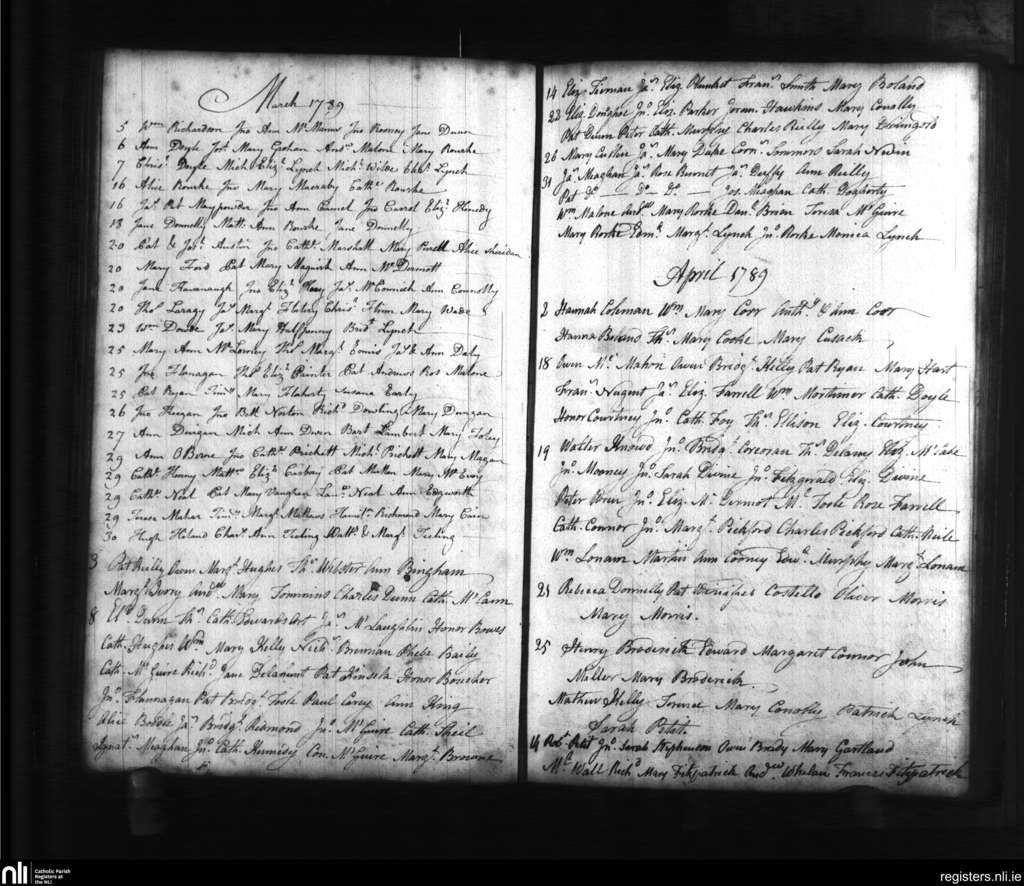 March 1789
5 Wm Richardson Jno Ann Mc Manus Jno Rooney Jane Dunn
6 Ann Doyle Jas Mary Grohan Andw Malone Mary Rourke
7 Doyle Mich Eliz Lynch Mich Wilde Lynch
16 Alice Rourke Jno Mary Cathe Rourke
16 Jas Pat Jno Ann Jno Carrol Eliz Kenedy
18 Jane Donnelly Matt Ann Rourke Jane Donnelly
20 Pat & Jas Austin Jno Cathe Marshall Mary Alice Sheridan
20 Mary Ford Pat Mary Ann Mc Dermott
20 Jane Kavanaugh Jno Eliz Jas Mc Cormick Ann Connolly
20 Thos Jas Margt Flatery Flinn Mary Wade
23 Wm Jas Mary Halfpenny Lynch
25 Mary Ann Thos Margt Ennis Jas & Ann Daly
25 Jno Flanagan Thos Eliz Painter Pat Andrews Ros Malone
25 Pat Ryan Timy Mary Flaherty Susana Early
26 Jno Keegan Jno Richd Dowling Mary Dungan
27 Ann Durgan Mich Ann Bart Lambert Mary Foley
29 Ann O Berne Jno Cathe Prickett Michl Prickett Mary Magan
29 Cathe Henny Matt Eliz Pat Mary Mc Evoy
29 Cathe Neil Pat Mary Vaughan Ann Edgworth
29 Terese Mahar Timy Margt Richmond Mary
30 Hugh Holand Chars Ann Tieling Matt & Margt Tieling
3 Pat Reilly Owen Margt Hughes Thos Webster Ann Bingham
Margt Ivory Andw Mary Tommins Charles Dunn Cath. Mc Cann
8 Dunn Thos Cath. Jas Mc Laughlin Honor Bowes
Cath. Hughes Wm Mary Kelly Nichs Brennan Phebe Bailey
Cath. Mc Guire Richd Jane Delamont Pat Kinsela Honor Boucher
Jno Flannagan Pat Bridgt Toole Paul Carey Ann King
Alice Jas Bridgt Redmond Jno Mc Guire Cath. Sheil
Ignats Meaghan Jno Cath. Kennedy Con. Mc Guire Margt Broome
14 Eliz. Tiernan Jas Eliz Plunket Frans Smith Mary Boland
23 Eliz. Donghoe Jno Eliz. Parker Frans Hawkins Mary Conolly
Pat Dunn Peter Cath. Murphy Charles Reilly Mary
26 Mary Cullen Jas Mary Duke Corns Simmons Sarah
31 Jas Meaghan Jas Rose Burnet Jas Duffy Ann Reilly
Pat Do - Do - Do - Jos. Meaghan Cath. Dogherty
Wm Malone Andw Mary Rorke Danl Brien Teresa Mc Guire
Mary Rorke Margt Lynch Jno Rorke Monica Lynch
April 1789
2 Hannah Coleman Wm Mary Coor Anthy & Ann Coor
Hanna Thos Mary Cooke Mary Cusack
18 Owen Mc Mahon Owen Bridgt Kelly Pat Ryan Mary Hart
Frans Nugent Jas Eliz. Farrell Wm Mortimor Cath. Doyle
Honor Courtney Jno Cath. Foy Thos Ellison Eliz. Courtney
19 Walter Jno Bridgt Corcoran Thos Delany
Jno Mooney Jno Sarah Divine Jno Fitzgerald Eliz. Divine
Peter Jno Eliz. Mc Dermot Mc Toole Rose Farrell
Cath. Connor Jno Margt Pickford Charles Pickford Cath.
Wm Lonam Martin Ann Cooney Edwd Murphy Margt Lonam
21 Rebecca Donnelly Pat Winifred Costello Oliver Morris
Mary Morris.
25 Henry Broderick Edward Margaret Connor John
Miller Mary Broderick.
Mathew Kelly Terence Mary Conolly Patrick Lynch
Sarah
14 Robt Jno Sarah Stephenson Owen Brady Mary Gartland
Wall Richd Mary Fitzpatrick Andw Whelan Frances Fitzpatrick
nli
Catholic Parish
Registers at
the NLI
registers.nli.ie